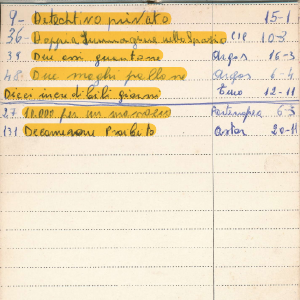 9- Detective privato 15-1
36- Doppia Immagine nello Spazio CIC 10-3
39 Due assi guantone Argos 16-3
48 Due maghi pallone Argos 6-4
Dieci incredibili giorni Euro 12-11
27 10.000 per un Partenopea 6-3
131 Decamerone Proibito Astor 20-11